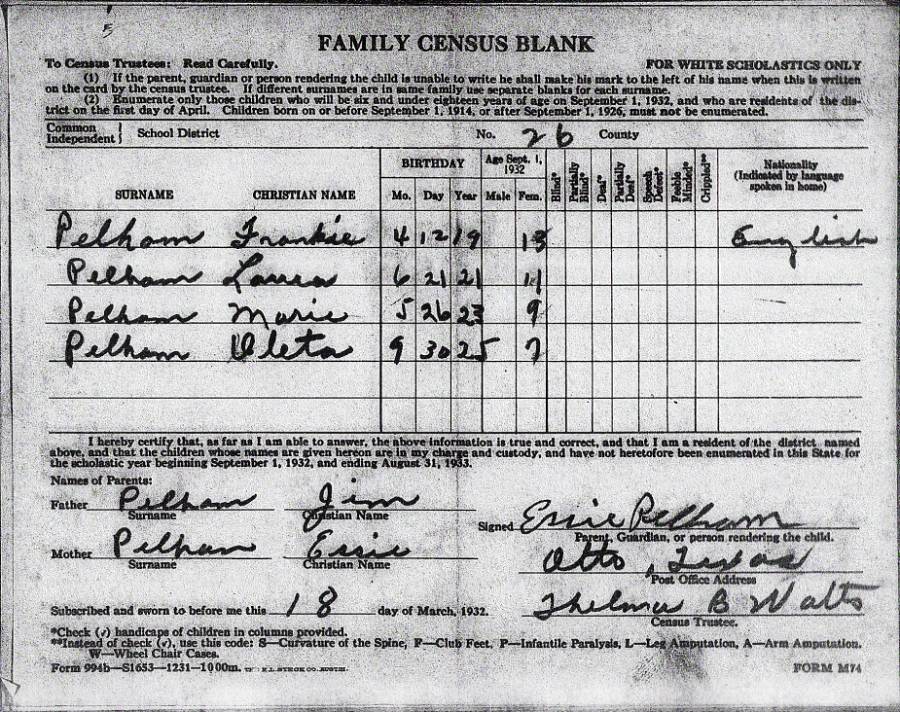 FAMILY CENSUS BLANK
To Census Trustees: Read Carefully. FOR WHITE SCHOLASTICS ONLY
(1) If the parent, guardian or person rendering the child is unable to write he shall make his mark to the left of his name when this is written
on the card by the census trustee. If different surnames are in same family use separate blanks for each surname.
(2) Enumerate only those children who will be six and under eighteen years of age on September 1, 1932, and who are residents of the dis-
trict on the first day of April. Children born on or before September 1, 1914, or after September 1, 1926, must not be enumerated.
Common
Independent } School District No. 26 County
SURNAME CHRISTIAN NAME BIRTHDAY Mo. Day Year Age Sept. 1, 1932 Male Fem. Blind* Partially Blind* Deaf* Partially Deaf* Speech Defect* Feeble Minded* Crippled** Nationality (Indicated by language spoken in home)
Pelham Frankie 4 12 19 13 English
Pelham Laura 6 21 21 11
Pelham Marie 5 26 23 9
Pelham Oleta 9 30 25 7
I hereby certify that, as far as I am able to answer, the above information is true and correct, and that I am a resident of the district named
above, and that the children whose names are given hereon are in my charge and custody, and have not heretofore been enumerated in this State for
the scholastic year beginning September 1, 1932, and ending August 31, 1933.
Names of Parents:
Father Pelham Jim
Surname Christian Name
Signed Essie Pelham
Parent, Guardian, or person rendering the child.
Mother Pelham Essie
Surname Christian Name
Otto, Texas
Post Office Address
Subscribed and sworn to before me this 18 day of March, 1932. Thelma B Watts
Census Trustee.
*Check (✓) handicaps of children in columns provided.
**Instead of check (✓), use this code: S—Curvature of the Spine, F—Club Feet, P—Infantile Paralysis, L—Leg Amputation, A—Arm Amputation.
W—Wheel Chair Cases.
Form 994b—S1653—1231—1000m. FORM M74